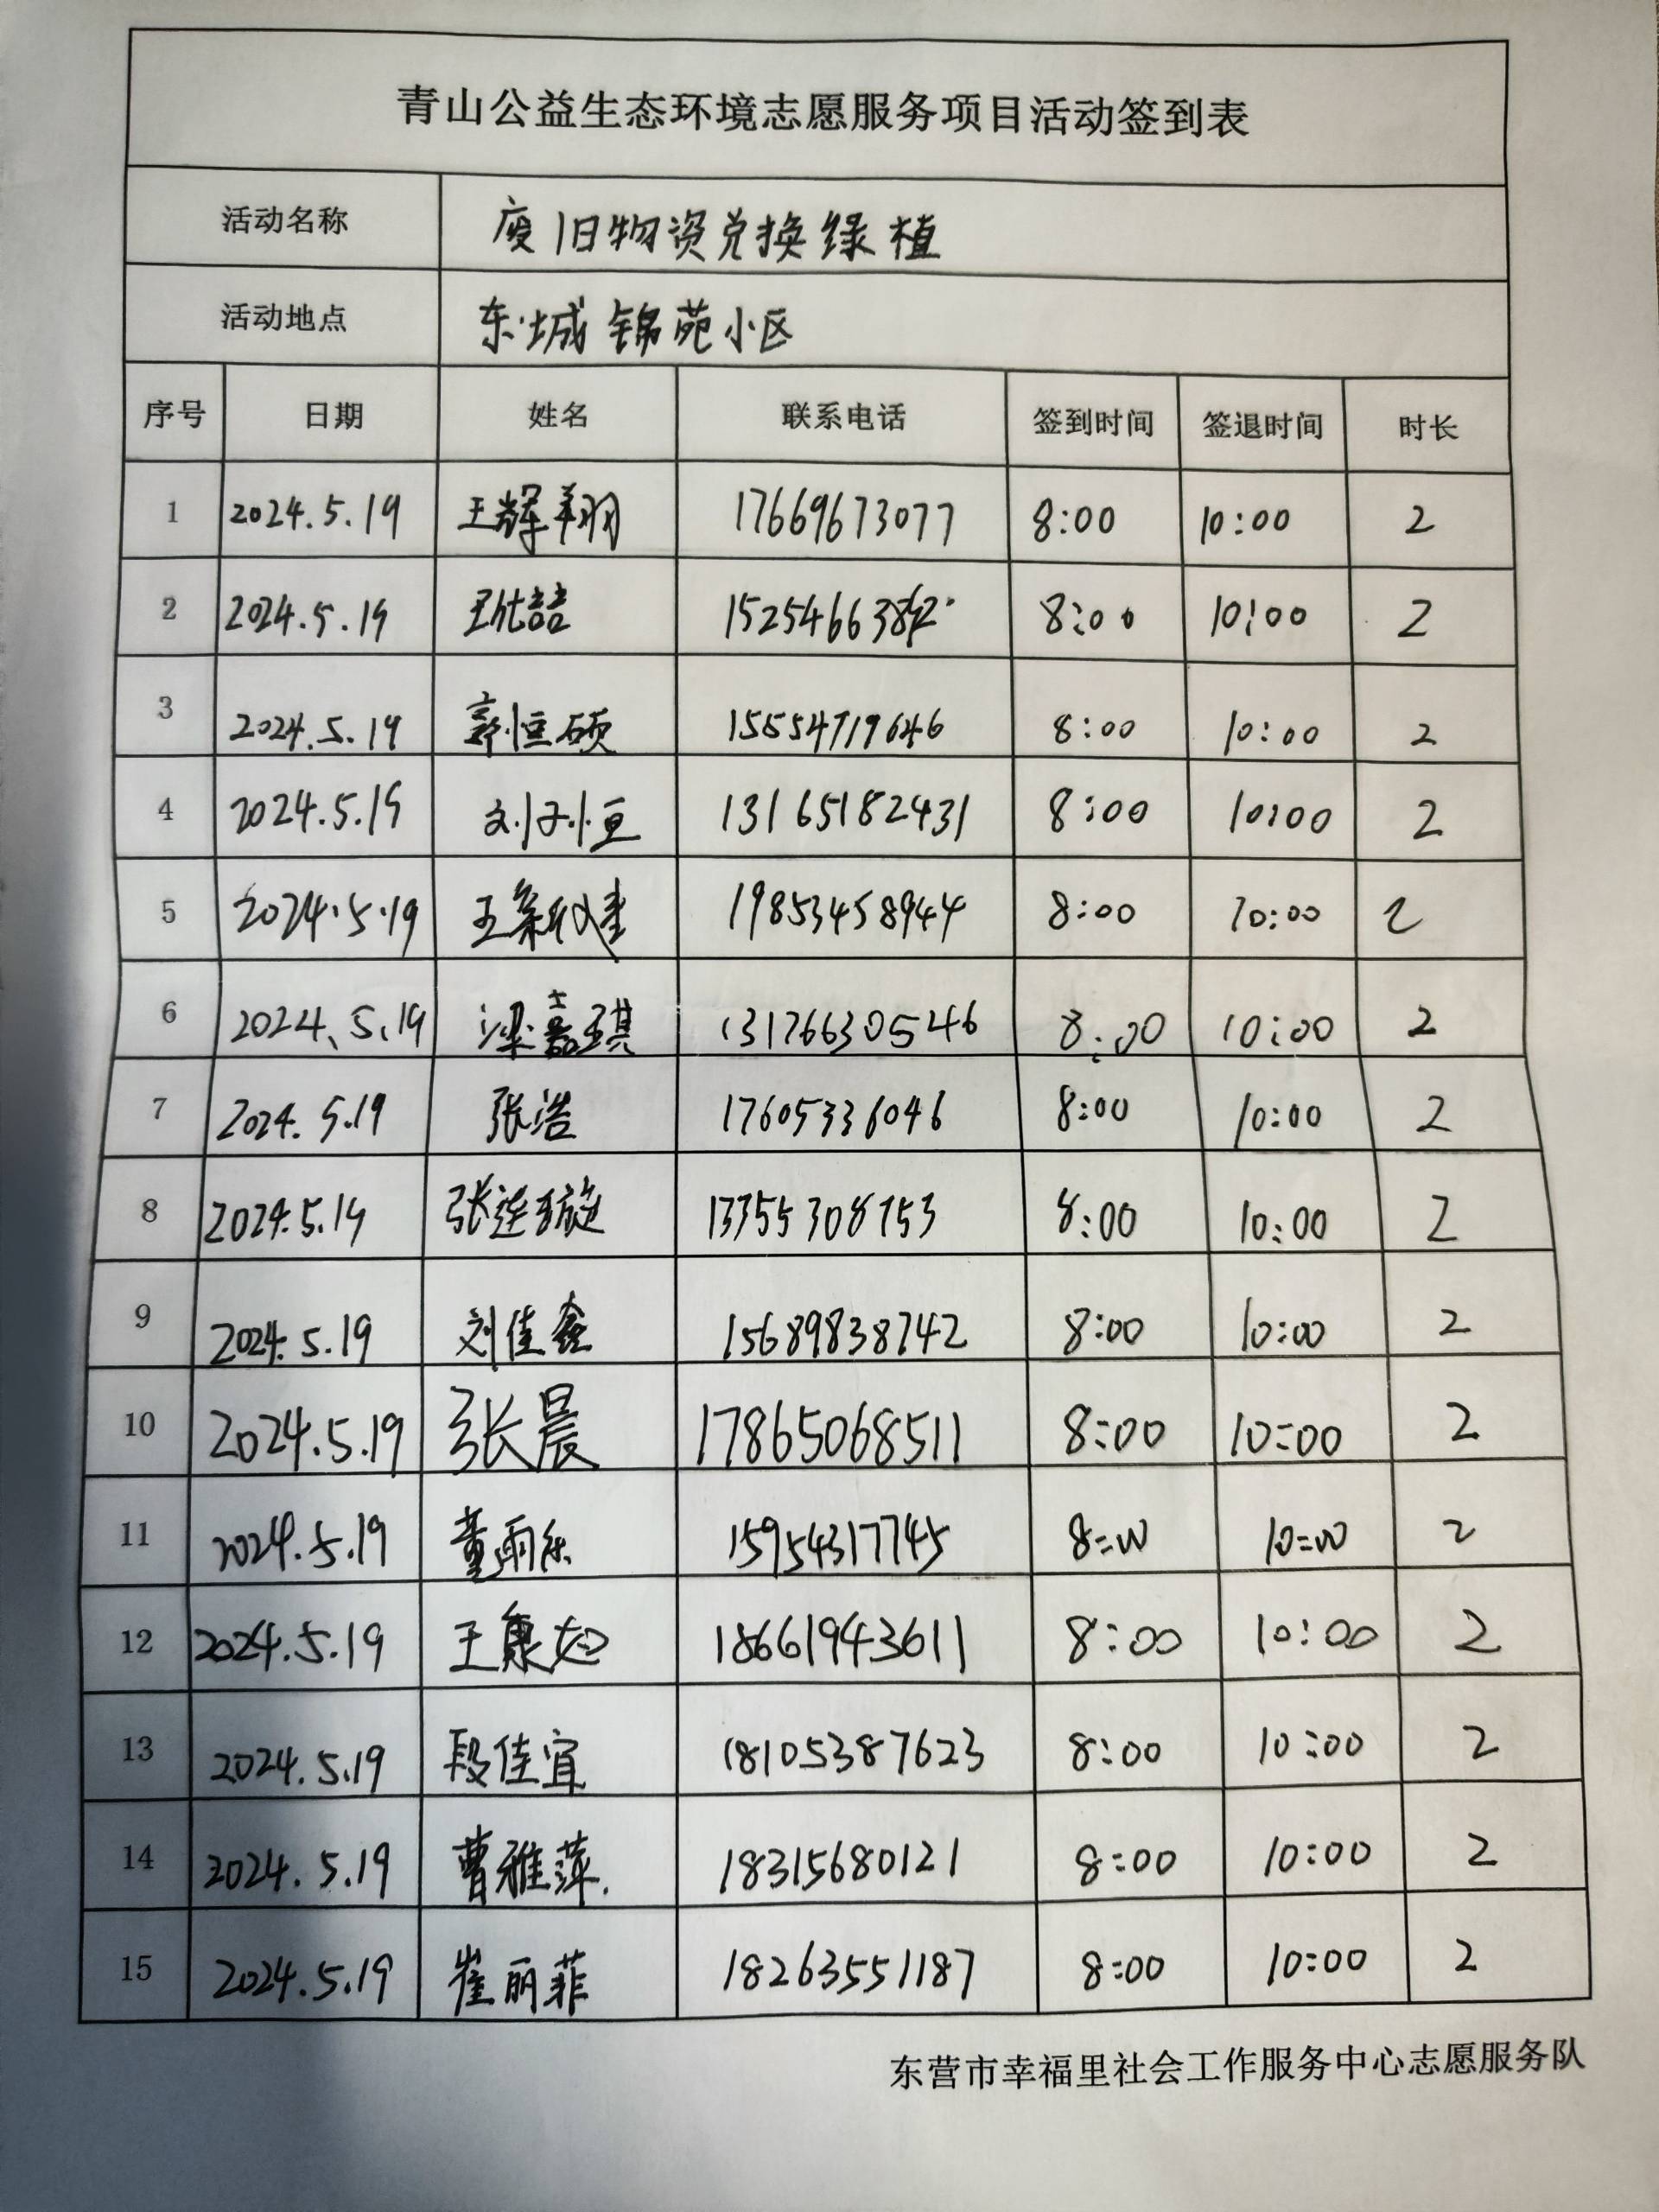 青山公益生态环境志愿服务项目活动签到表
活动名称 废旧物资兑换绿植
活动地点 东城锦苑小区
序号 日期 姓名 联系电话 签到时间 签退时间 时长
1 2024.5.19 王辉翔 17669673077 8:00 10:00 2
2 2024.5.19 8:00 10:00 2
3 2024.5.19 郭恒硕 15554719646 8:00 10:00 2
4 2024.5.19 刘子恒 13165182431 8:00 10:00 2
5 2024.5.19 19853458944 8:00 10:00 2
6 2024.5.19 梁嘉琪 13176630546 8:00 10:00 2
7 2024.5.19 张浩 17605336046 8:00 10:00 2
8 2024.5.19 张莲璇 13355308753 8:00 10:00 2
9 2024.5.19 刘佳鑫 15689838742 8:00 10:00 2
10 2024.5.19 张晨 17865068511 8:00 10:00 2
11 2024.5.19 董雨乐 15954317745 8:00 10:00 2
12 2024.5.19 王康旭 18661943611 8:00 10:00 2
13 2024.5.19 段佳宜 18105387623 8:00 10:00 2
14 2024.5.19 曹雅萍. 18315680121 8:00 10:00 2
15 2024.5.19 崔丽菲 18263551187 8:00 10:00 2
东营市幸福里社会工作服务中心志愿服务队